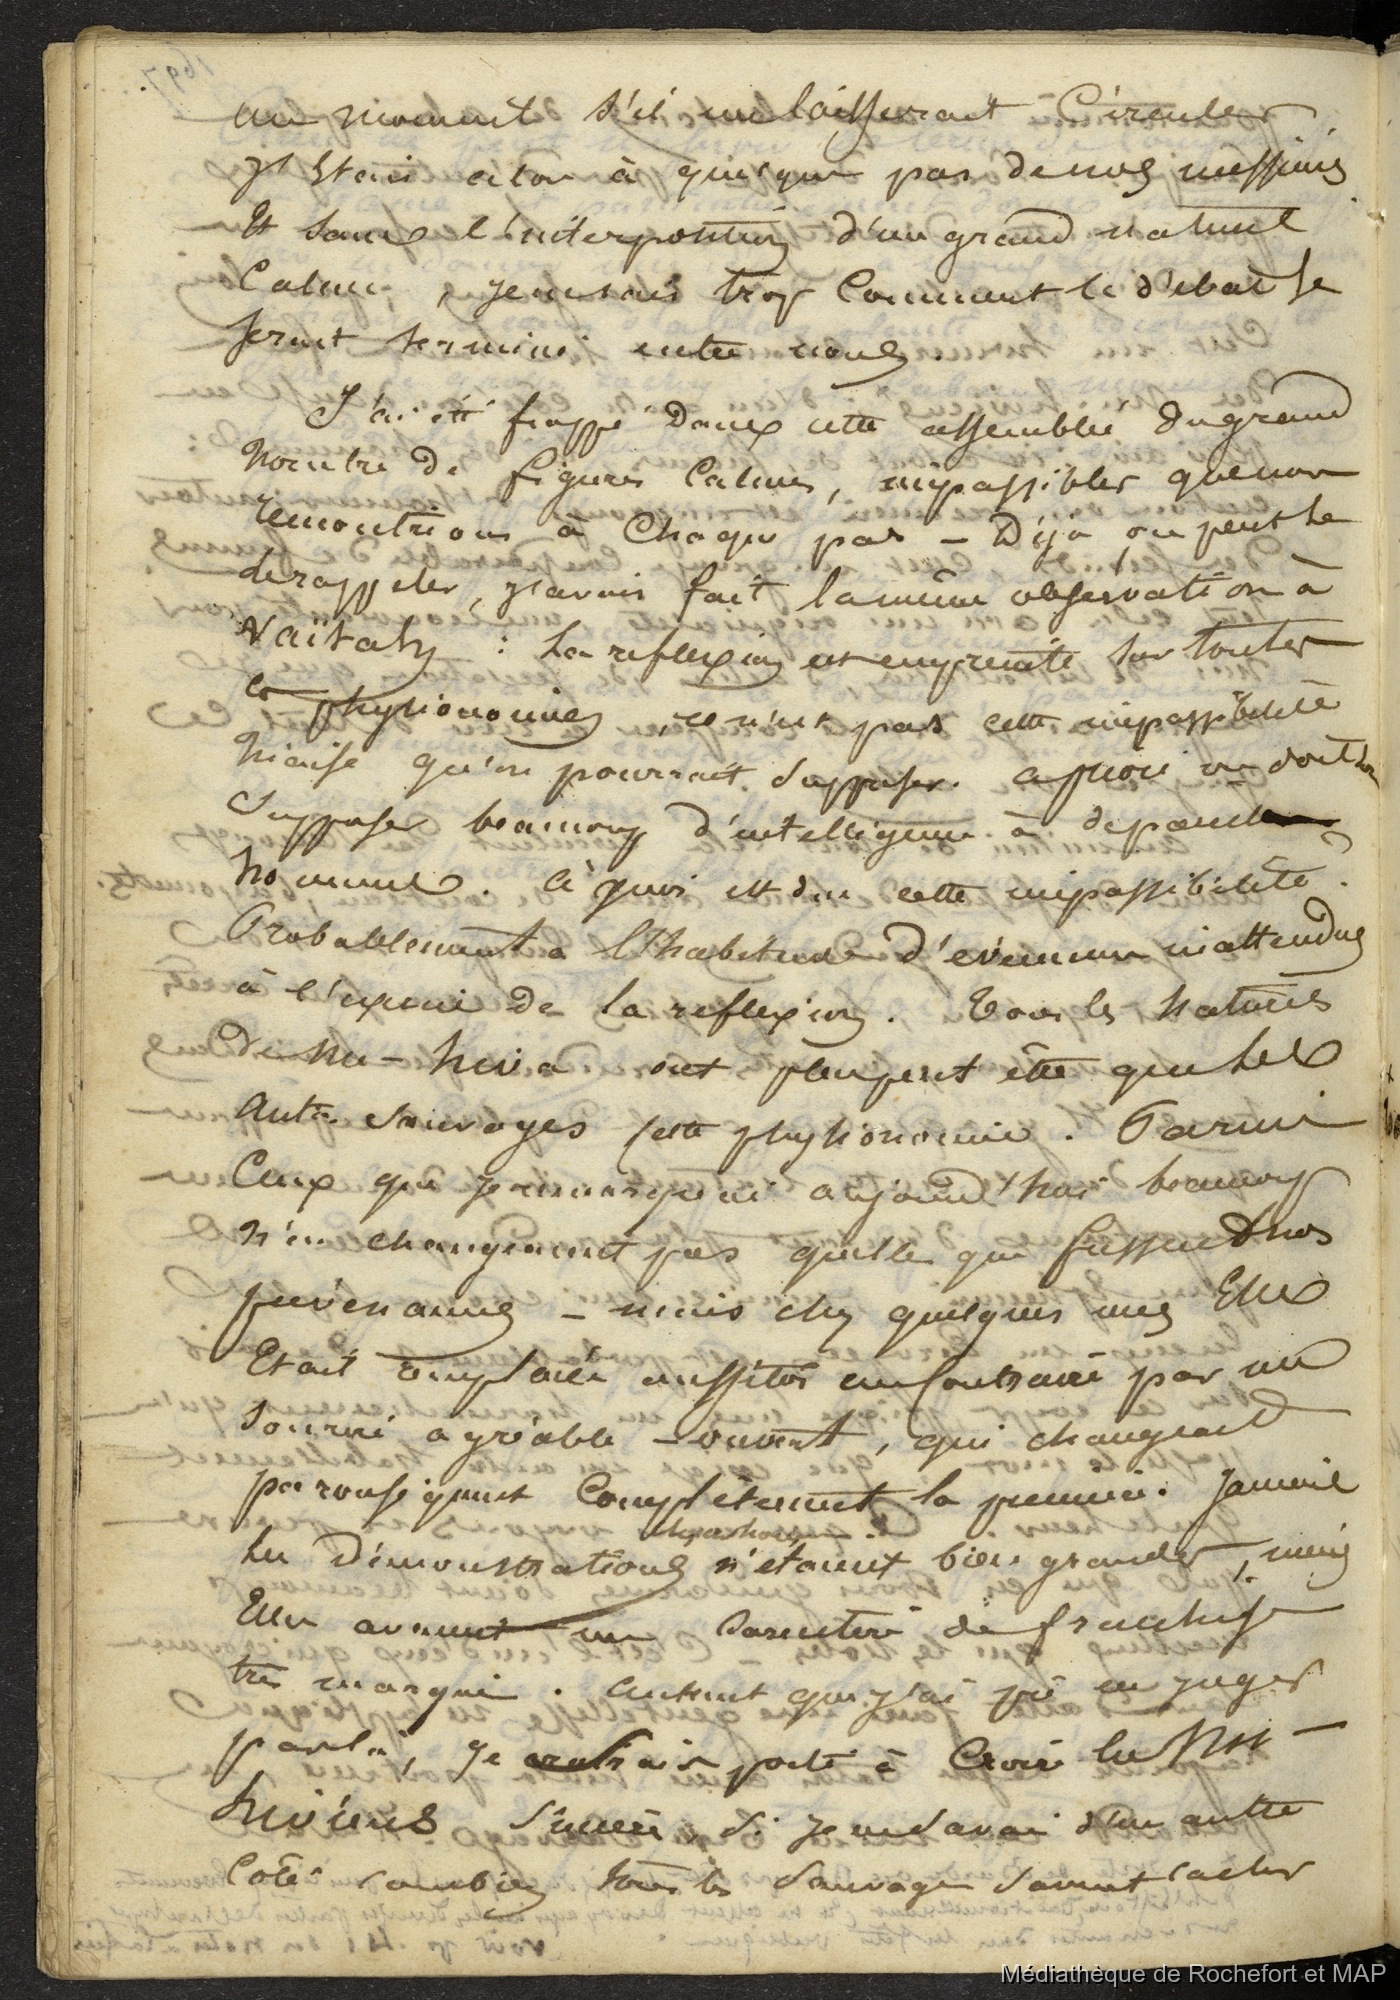 au moment s'il me laisserait Circuler
J'étais alors à quelque pas de nos messieurs
Et sans l'interposition d'un grand naturel
Calme, je ne sais trop Comment le débat se
serait terminé entre nous
J'ai été frappé dans cette assemblée du grand
Nombre de figures Calmes, impassibles que nous
rencontrions à Chaque pas — Déjà, on peut se
le rappeler, j'avais fait la même observation à
Vaïtahu : la reflexion est empreinte sur toutes
ces physionomies, ce n'est pas cette impassibilité
niaise qu'on pourrait supposer. on doit
Supposer beaucoup d'intelligence à de pareils
hommes. à quoi est due cette impassibilité ?
Probablement à l'habitude d'évènemens inattendus
à l'exercice de la reflexion. Tous les naturels
de Nu-hiva ont plus peut être que les
autres Sauvages cette physionomie. Parmi
Ceux que je remarquai aujourd'hui beaucoup
n'en changeaient pas quelle que fussent nos
prévenances — mais chez quelques uns Elle
Etait remplacée aussitôt au Contraire par un
Sourire agréable — ouvert, qui changeait
par conséquent Complètement la première. Jamais
les démonstrations n'étaient bien grandes, mais
Elles avaient un Caractère de franchise
très marqué. autant que j'ai pû en juger
par là, je serais porté à Croire les Nu-
hiviens Sincères, si je ne savais d'un autre
Côté combien tous les Sauvages savent cacher
Médiathèque de Rochefort et MAP